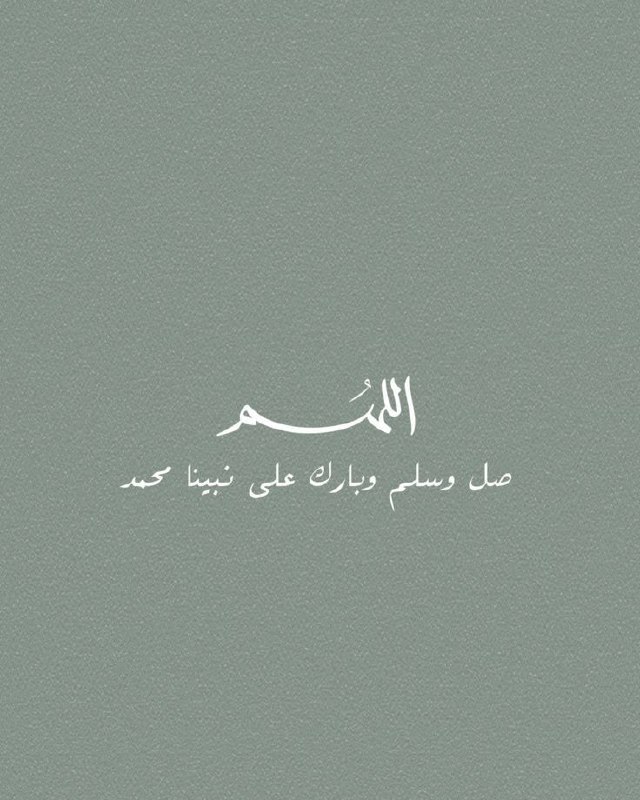 اللهُم
صل وسلم وبارك على نبينا محمد